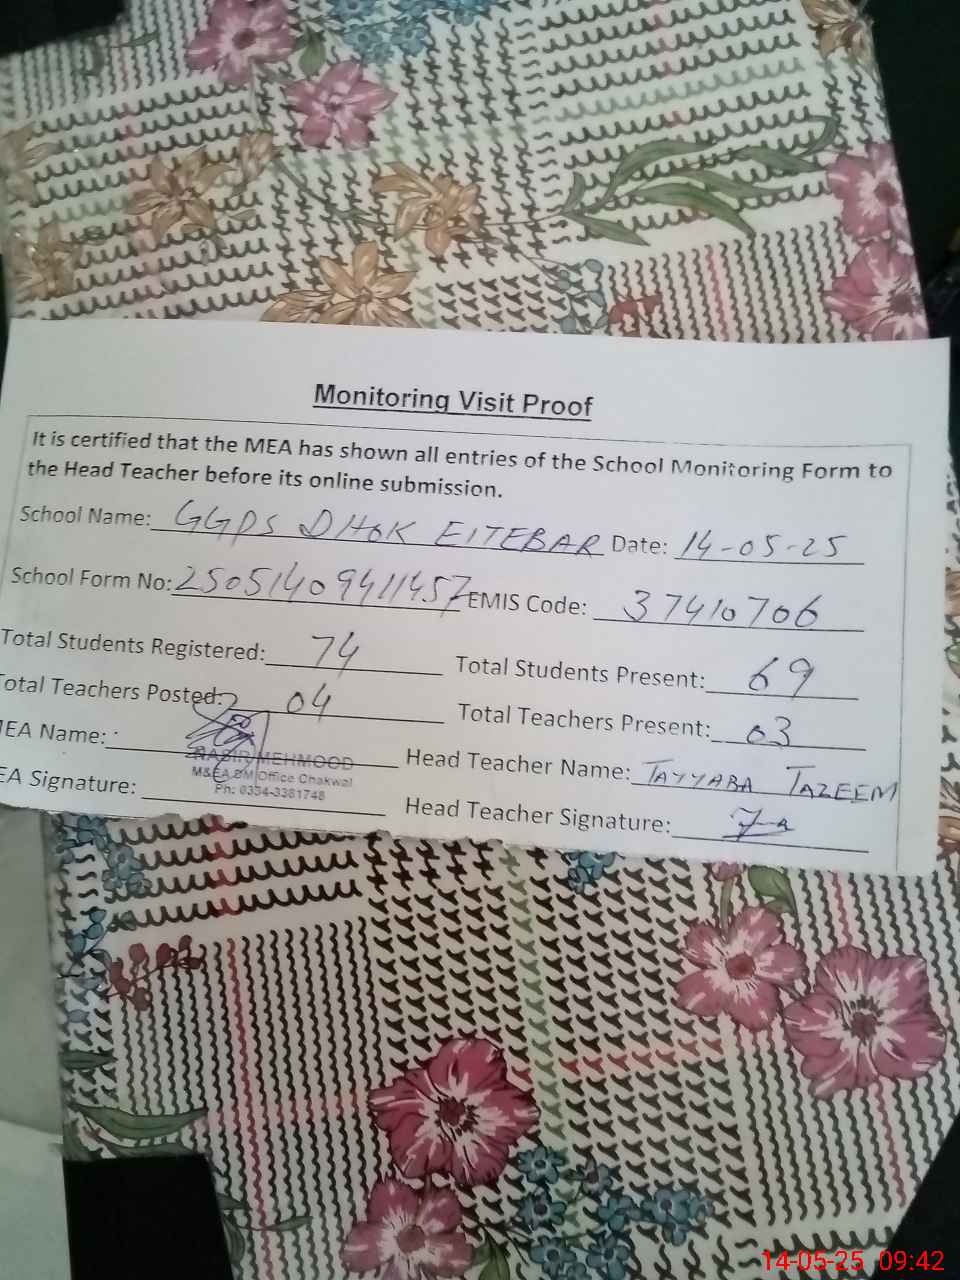 Monitoring Visit Proof
It is certified that the MEA has shown all entries of the School Monitoring Form to
the Head Teacher before its online submission.
School Name: GGPS DHOK EITEBAR Date: 14-05-25
School Form No: 25051409411457 EMIS Code: 37410706
Total Students Registered: 74 Total Students Present: 69
Total Teachers Posted: 04 Total Teachers Present: 03
MEA Name: Head Teacher Name: TAYYABA TAZEEM
MEHMOOD
M&EA DM Office Chakwal
Ph: 0334-3381748
EA Signature: Head Teacher Signature:
14-05-25 09:42